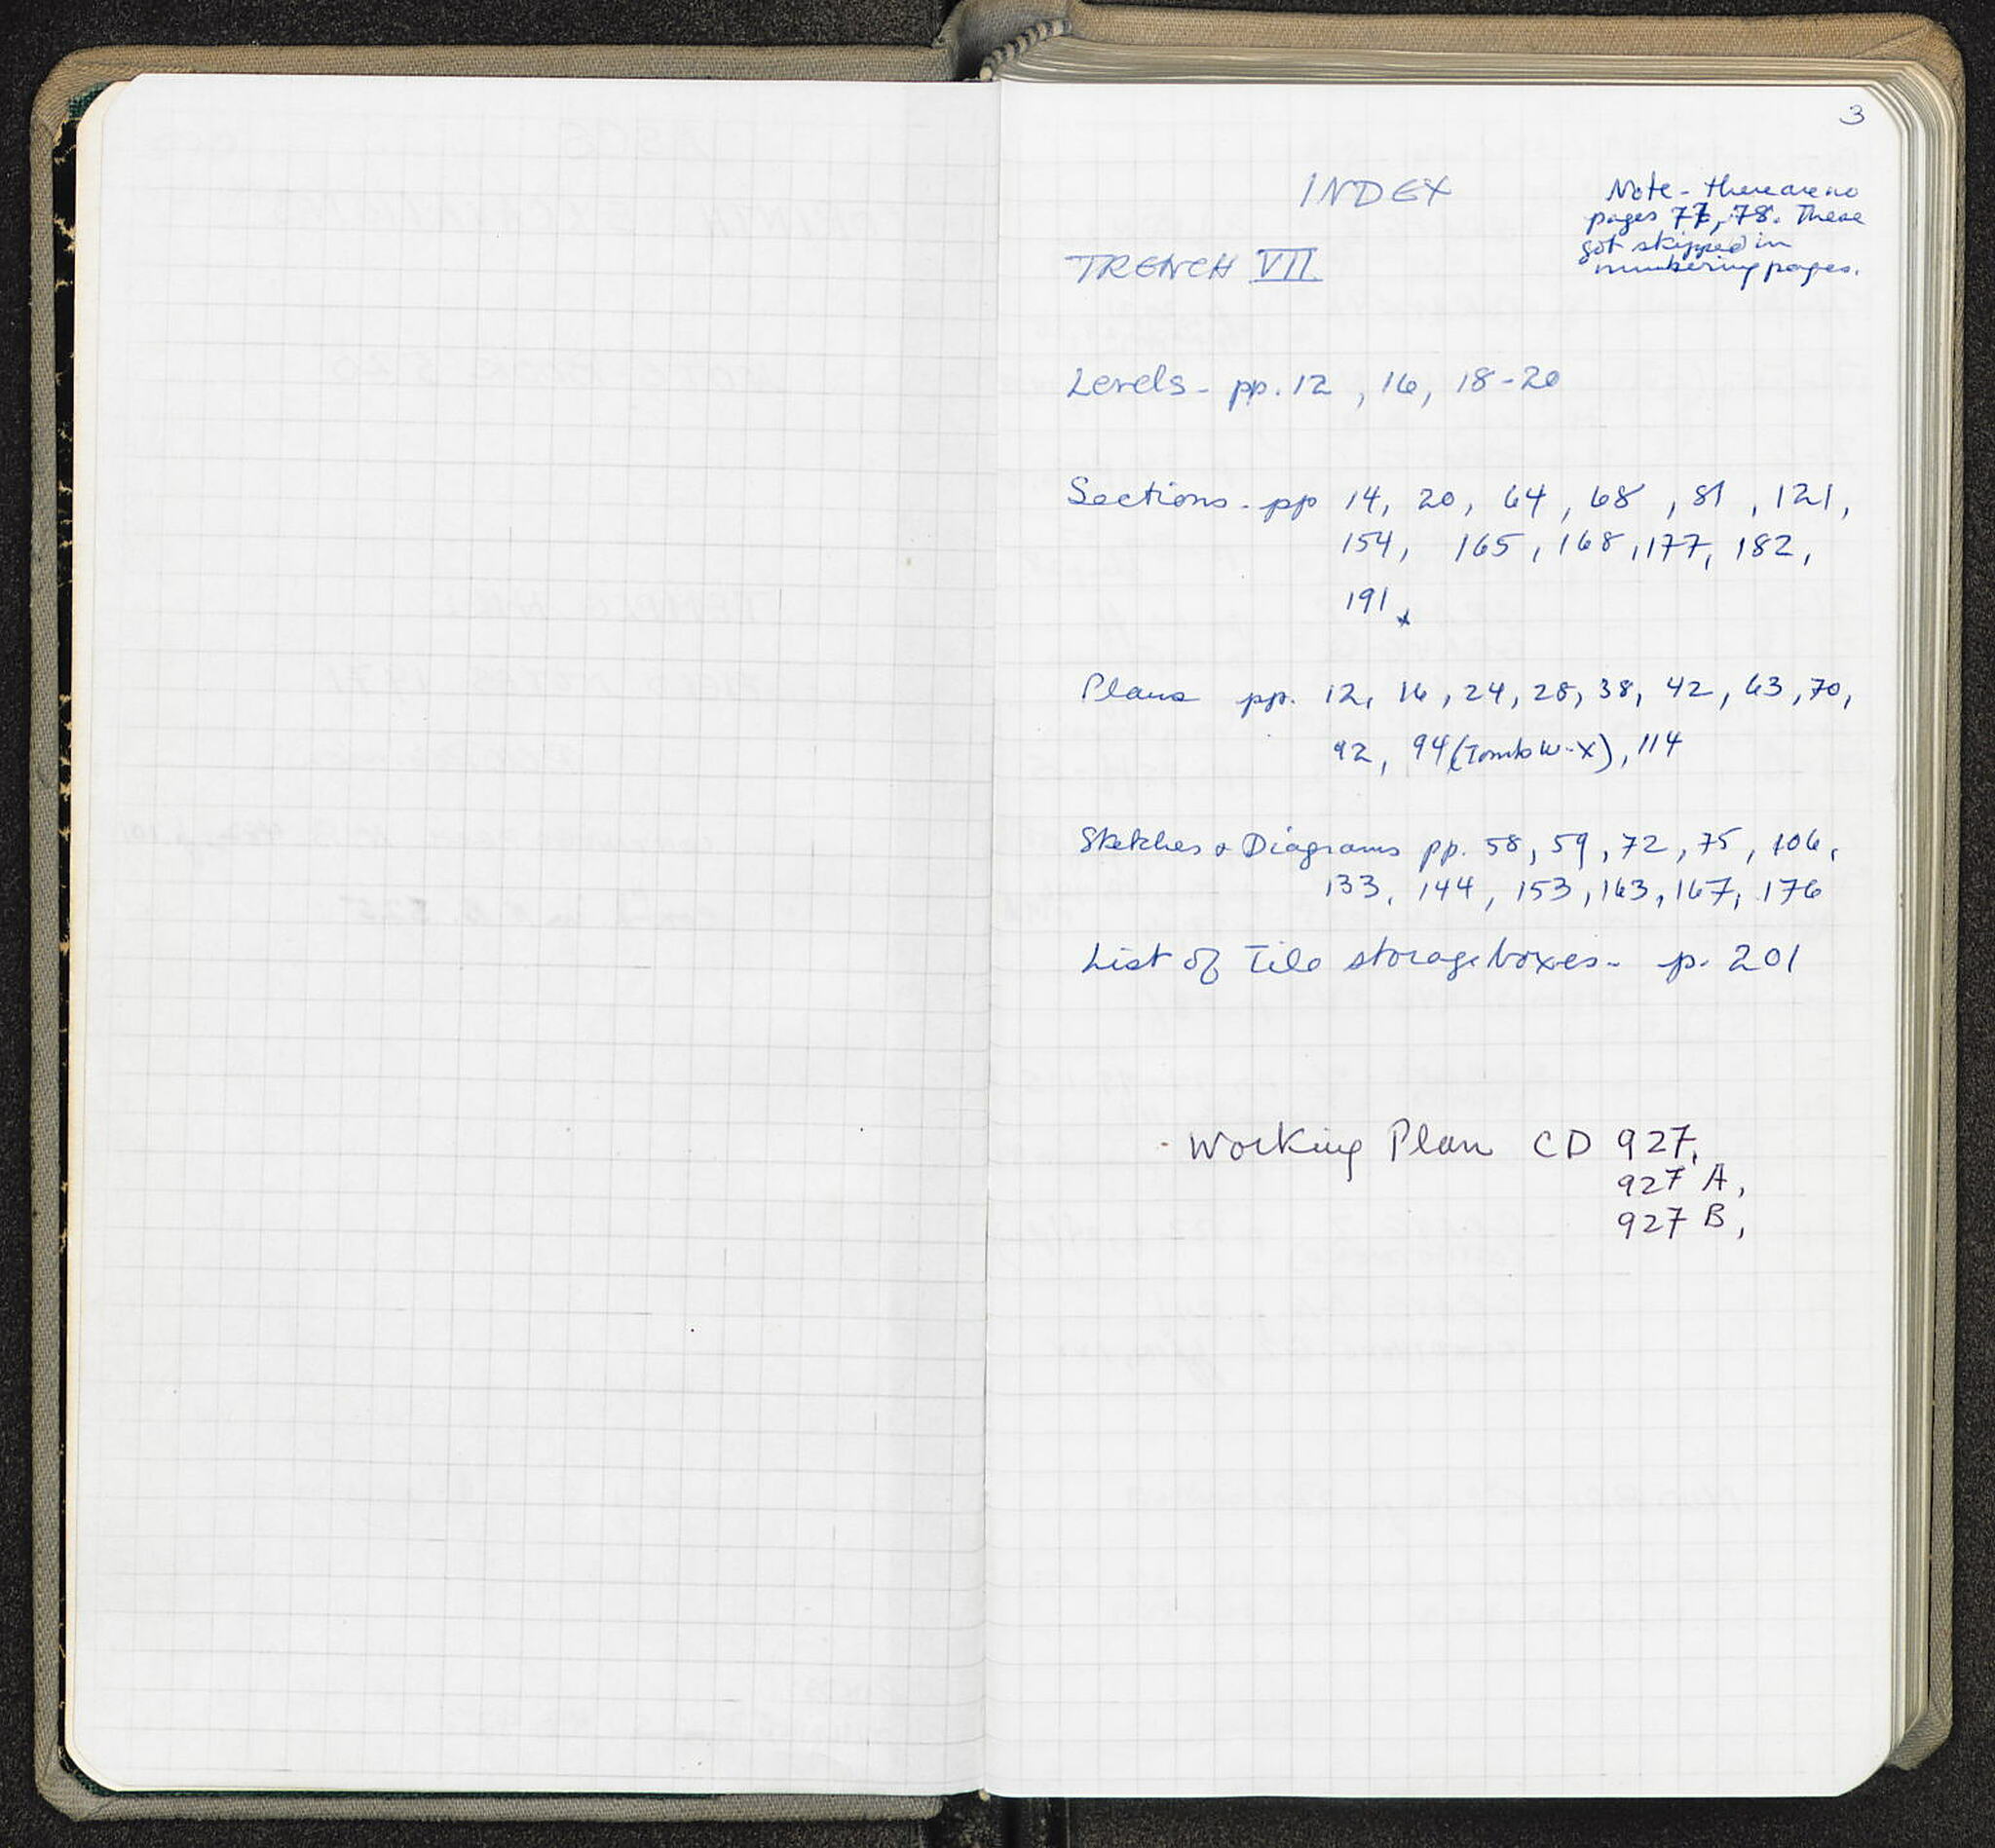 3
INDEX
Note - there are no
pages 77, 78. These
got skipped in
numbering pages.
TRENCH VII
Levels - pp. 12 , 16, 18-20
Sections - pp 14, 20, 64, 68 , 81 , 121,
154, 165, 168, 177, 182,
191
Plans pp. 12, 16, 24, 28, 38, 42, 63, 70,
92, 94 (Tombs W-X), 114
Sketches & Diagrams pp. 58, 59, 72, 75, 106,
133, 144, 153, 163, 167, 176
List of Tile storage boxes - p. 201
- Working Plan CD 927,
927 A,
927 B,